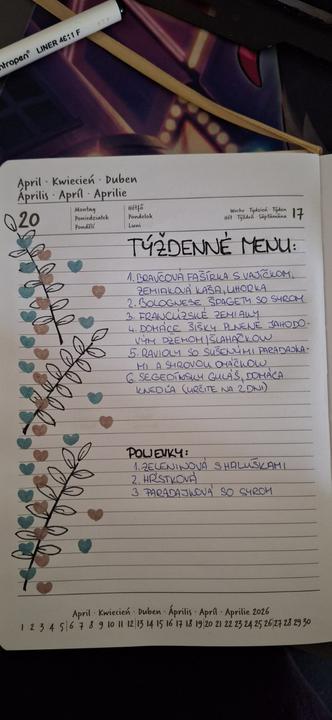 ntropen LINER 4611 F
April · Kwiecień · Duben
Április · Apríl · Aprilie
20
Montag
Poniedziałek
Pondělí
Hétfő
Pondelok
Luni
Woche Tydzień Týden
Hét Týždeň Săptămâna
17
TÝŽDENNÉ MENU:
1. BRAVČOVÁ FAŠÍRKA S VAJÍČKOM,
ZEMIAKOVÁ KAŠA, UHORKA
2. BOLOGNESE ŠPAGETY SO SYROM
3. FRANCÚZSKE ZEMIAKY
4. DOMÁCE ŠIŠKY PLNENÉ JAHODO-
VÝM DŽEMOM/ŠĽAHAČKOU
5. RAVIOLY SO SUŠENÝMI PARADAJKA-
MI A SYROVOU OMÁČKOU
6. SEGEDÍNSKY GULÁŠ, DOMÁCA
KNEDĽA (URČITE NA 2 DNI)
POLIEVKY:
1. ZELENINOVÁ S HALUŠKAMI
2. HŔSTKOVÁ
3. PARADAJKOVÁ SO SYROM
April · Kwiecień · Duben · Április · Apríl · Aprilie 2026
1 2 3 4 5 6 7 8 9 10 11 12 13 14 15 16 17 18 19 20 21 22 23 24 25 26 27 28 29 30